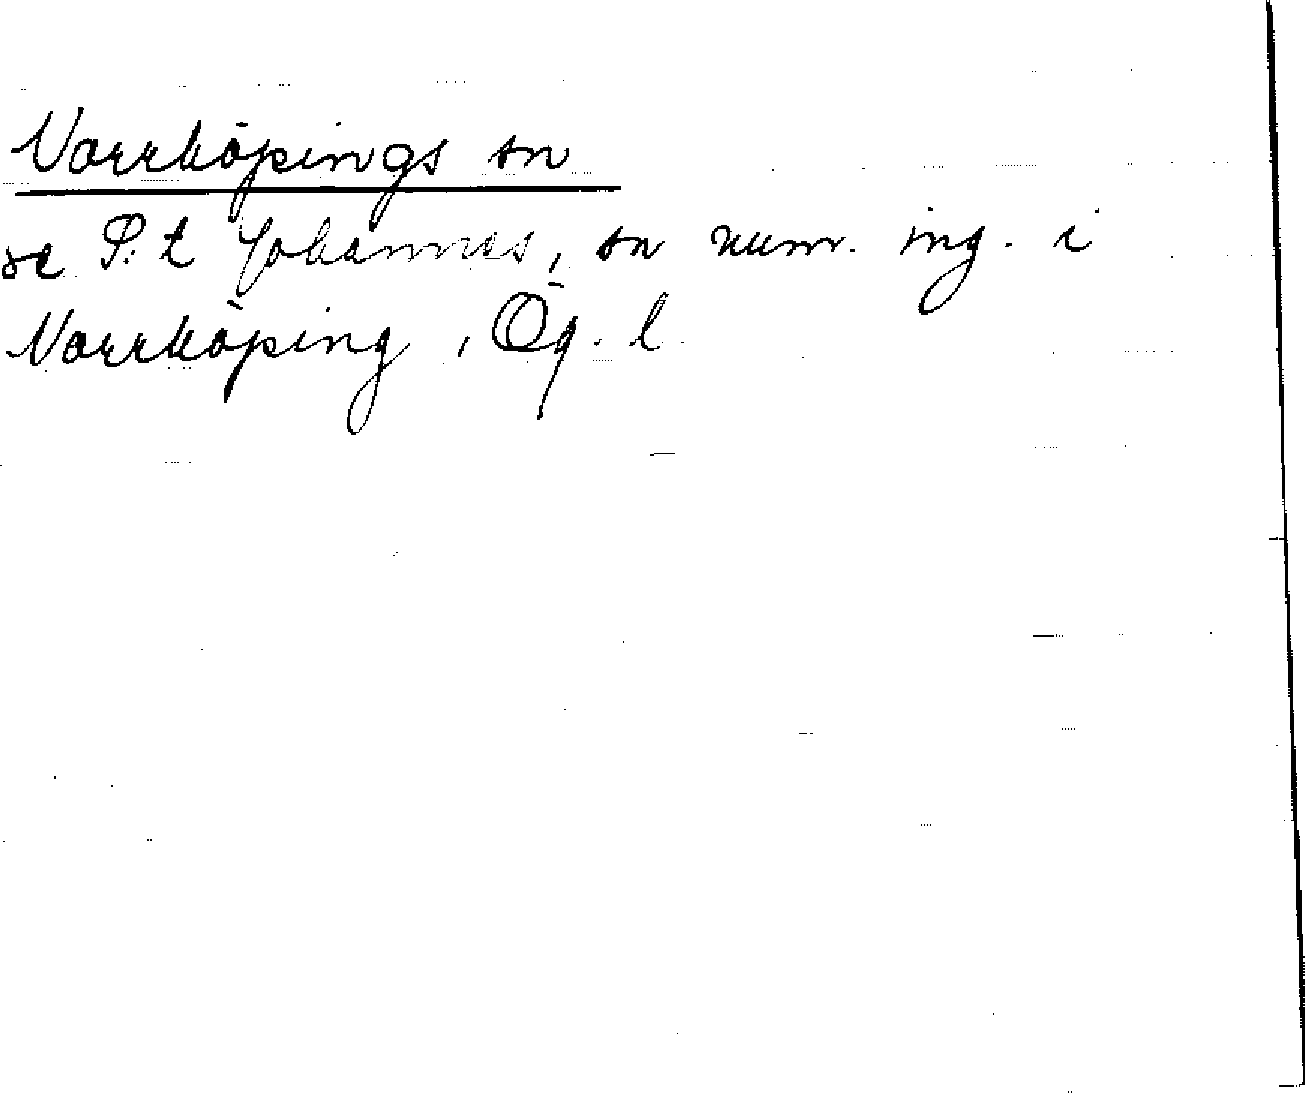 Norrköpings sn
se S:t Johannes, sn num. ing. i
Norrköping, Ög. l.